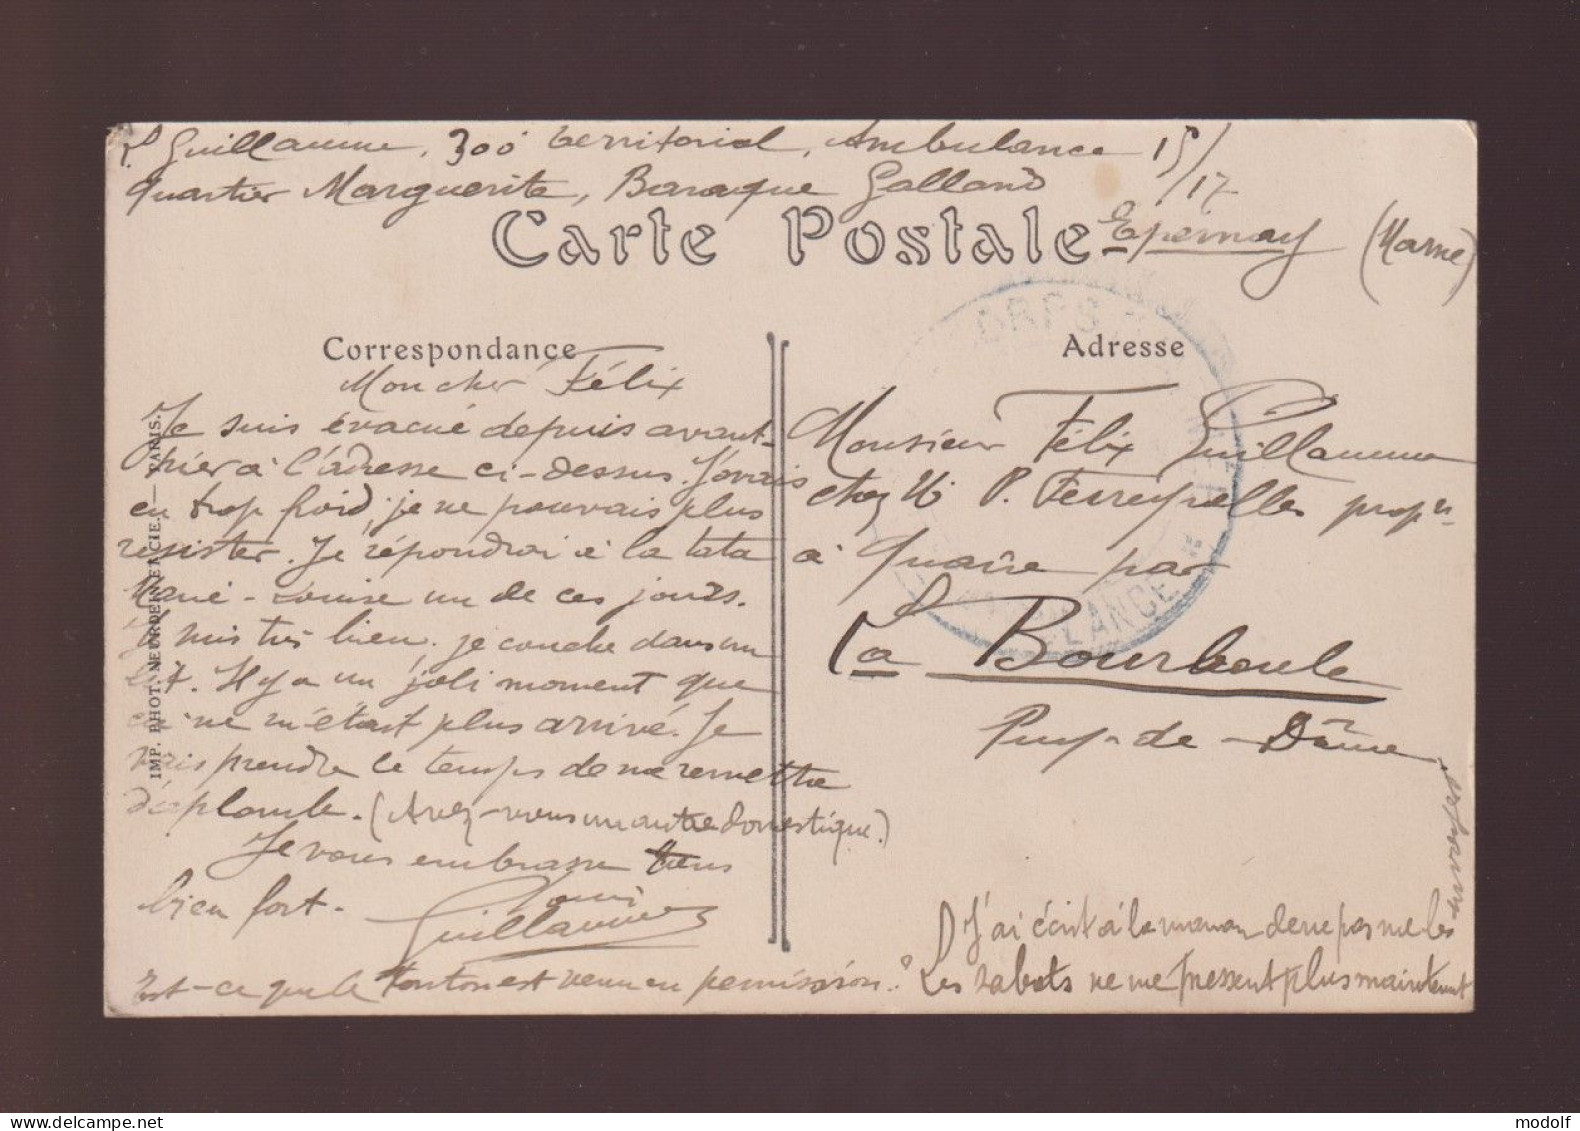 L Guillaume, 300 territorial, Ambulance 15/17
Quartier Marguerite, Baraque Galland
Epernay (Marne)
Carte Postale
Correspondance
Adresse
Mon cher Félix
Je suis évacué depuis avant-
hier à l'adresse ci-dessus. J'avais
eu trop froid, je ne pouvais plus
resister. Je répondrai à la tata
Marie-Louise un de ces jours.
suis très bien. je couche dans un
lit. Il y a un joli moment que
ça ne m'était plus arrivé. Je
vais prendre le temps de me remettre
d'aplomb. (Avez-vous un autre domestique.)
Je vous embrasse tous
bien fort.
Louis
Guillaume
Est-ce que le tonton est venu en permission?
Monsieur Félix Guillaume
chez M P. Ferreyrolles prop re
à Quaire par
La Bourboule
Puy-de-Dôme
J'ai écrit à la maman de ne pas me les
envoyer
Les sabots ne me pressent plus maintenant
IMP. PHOT. NEURDEIN ET CIE. — PARIS.
CORPS
AMBULANCE
modolf